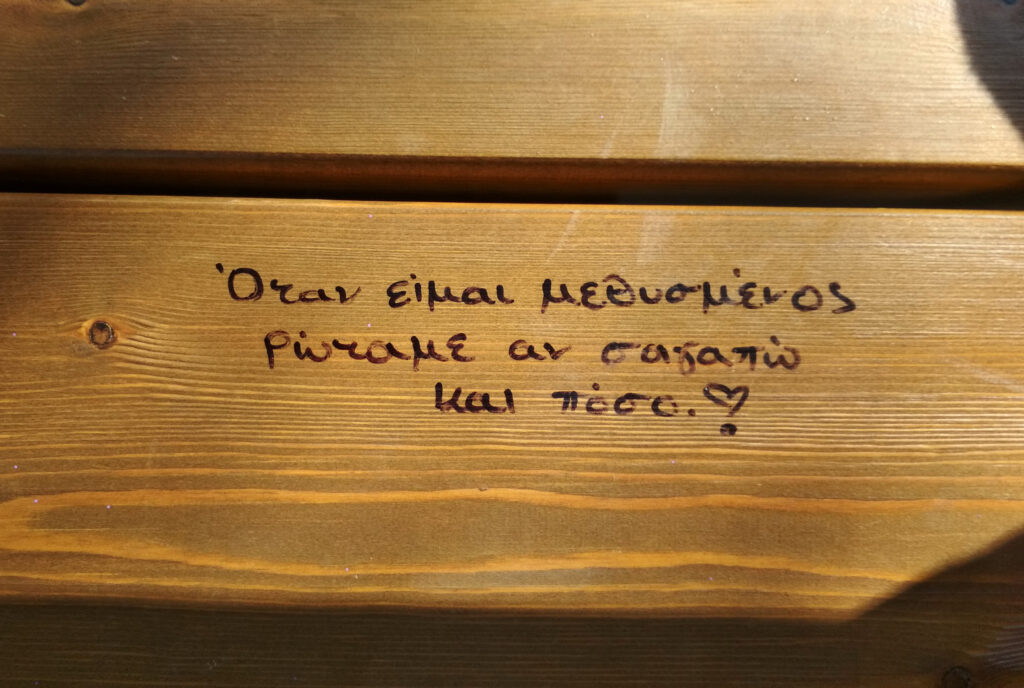 Όταν είμαι μεθυσμένος
ρώταμε αν σαγαπώ
και πόσο.